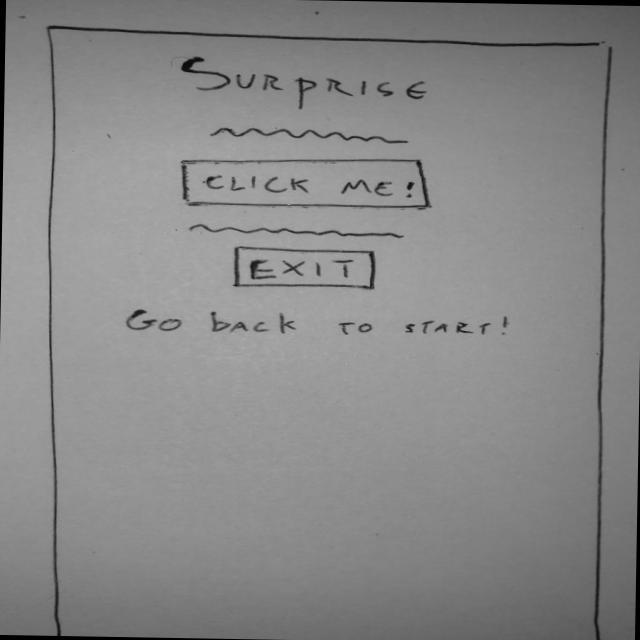 SURPRISE
CLICK ME!
EXIT
Go back to start!